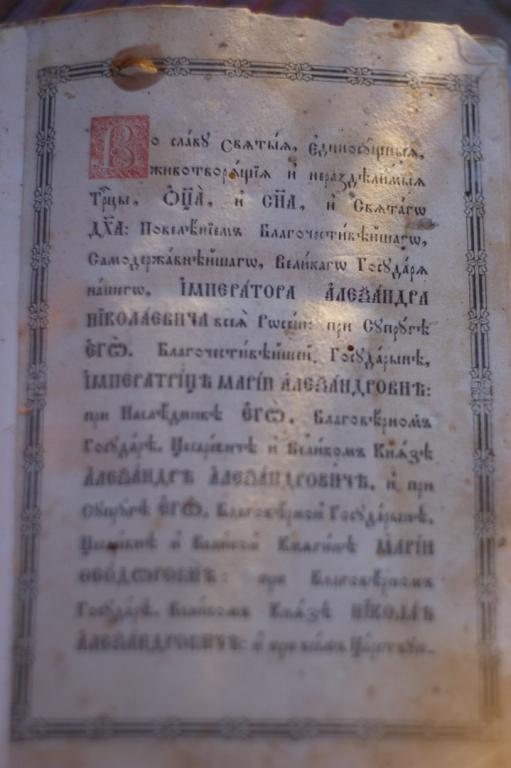 Во сла́ву святы́ѧ, є҆диносꙋ́щныѧ,
животворѧ́щїѧ и҆ нераздѣ́лимыѧ
Трⷪ҇цы, Ѻ҆ц҃А̀, и҆ СН҃А, и҆ Свѧта́гѡ
ДХ҃А: Повелѣ́нїемъ Благочести́вѣйшагѡ,
Самодержа́внѣйшагѡ, Вели́кагѡ Госꙋда́рѧ
на́шегѡ, І҆МПЕРА́ТОРА А҆ЛЕѮА́НДРА
НІКОЛА́ЕВИЧА всеѧ̀ Рѡссі́и: при Сꙋпрꙋ́гѣ
Є҆ГѠ̀, Благочести́вѣйшей, Госꙋда́рынѣ,
І҆МПЕРАТРІ́ЦѢ МАРІ́И А҆ЛЕѮА́НДРОВНѢ:
при Наслѣ́дникѣ Є҆ГѠ̀, Благовѣ́рномъ
Госꙋда́рѣ, Цесаре́вичѣ и҆ Вели́комъ Кнѧ́зѣ
А҆ЛЕѮА́НДРѢ А҆ЛЕѮА́НДРОВИЧѢ, и҆ при
Сꙋпрꙋ́гѣ Є҆ГѠ̀, Благовѣ́рной Госꙋда́рынѣ,
и҆ Вели́кой Кнѧги́нѣ МАРІ́И
ѲЕОДѠРОВНѢ: при Благовѣ́рномъ
Госꙋда́рѣ, Вели́комъ Кнѧ́зѣ НІКОЛА́Ѣ
А҆ЛЕѮА́НДРОВИЧѢ: и҆ при